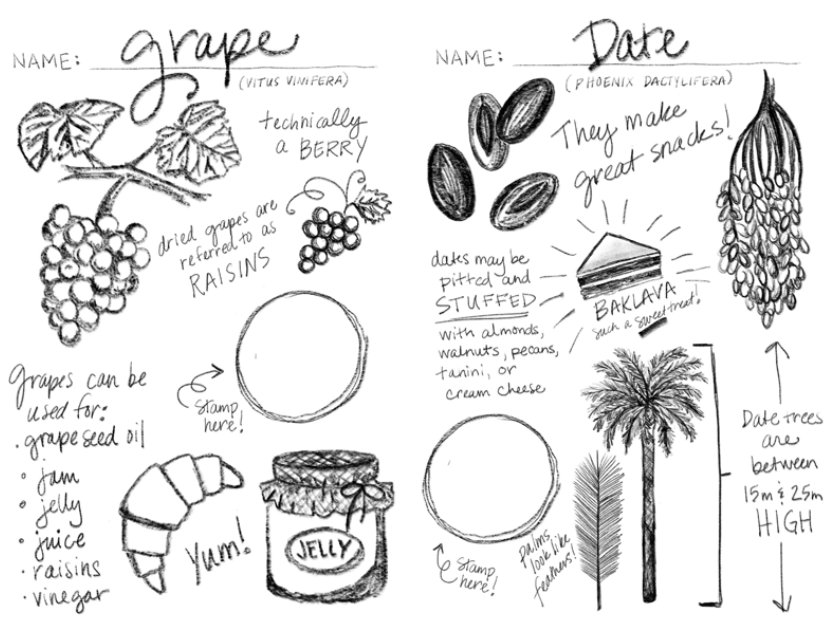 NAME: grape
(VITUS VINIFERA)
technically
a BERRY
dried grapes are
referred to as
RAISINS
Stamp
here!
grapes can be
used for:
· grapeseed oil
· jam
· jelly
· juice
· raisins
· vinegar
Yum!
JELLY
NAME: Date
(PHOENIX DACTYLIFERA)
They make
great snacks!
dates may be
pitted and
STUFFED
with almonds,
walnuts, pecans,
tanini, or
cream cheese
BAKLAVA
such a sweet treat!
Stamp
here!
palms
look like
feathers!
Date Trees
are
between
15m & 25m
HIGH